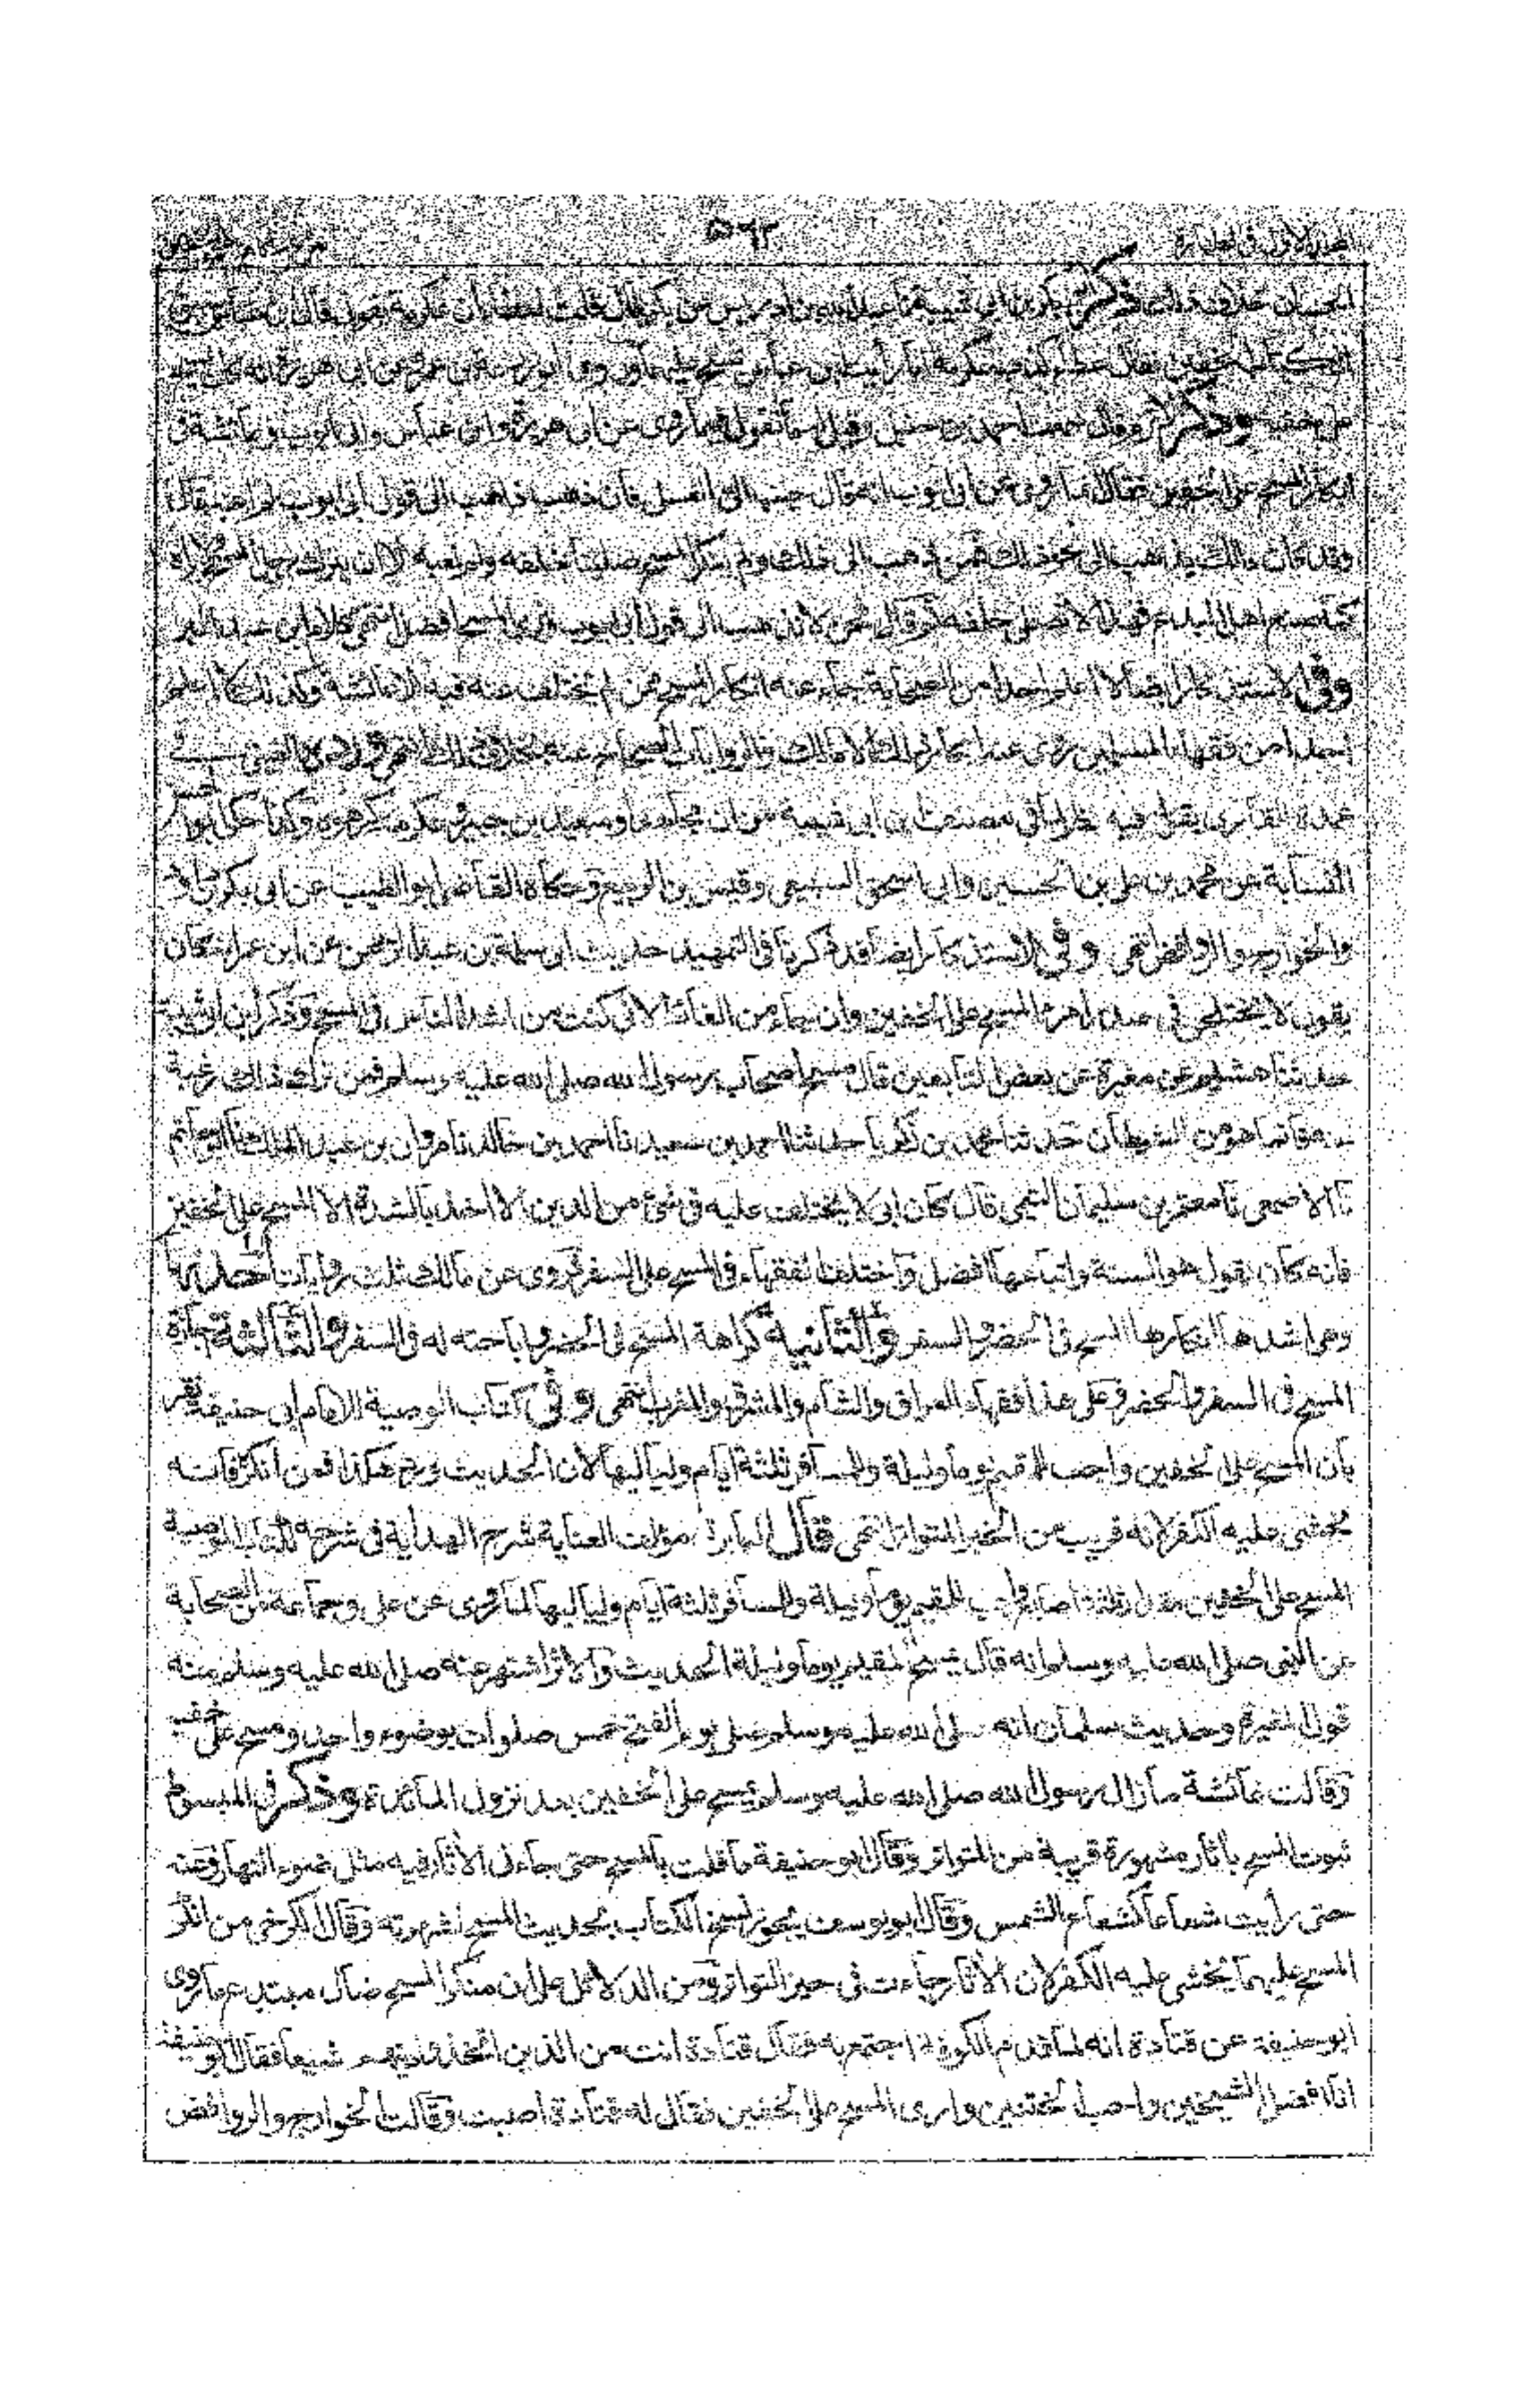 ٥٦٢
ابن ادريس عن قال قلت لعطاء ان عكرمة يقول قال ابن عباس سبق
الكتاب الخفين فقال عطاء كذب عكرمة انا رأيت ابن عباس يمسح عليهما وروى ابو زرعة بن عن ابى هريرة انه كان
خفيه وذكر الاثرم قال سمعت احمد بن حنبل وقيل له ما تقول فيما روى عن ابى هريرة وابن عباس وابى ايوب وعائشة فى
انكار المسح على الخفين فقال انما روى عن ابى ايوب انه قال حبب الى الغسل فان ذهب ذاهب الى قول ابى ايوب لم اعبه قال
الى نحو ذلك فمن ذهب الى ذلك ولم ينكر المسح صلينا خلفه ولم نعبه الا ان يترك رجل المسح ولا يراه
كما صنع اهل البدع فهذا لا نصلى خلفه ثم قال نحن لا نذهب الى قول ابى ايوب ونرى المسح افضل انتهى كلام ابن عبد البر
وفى الاستذكار ايضا لا اعلم احدا من الصحابة جاء عنه انكار المسح ممن لم يختلف عنه فيه الا عائشة وكذلك لا اعلم
احدا من فقهاء المسلمين روى عنه انكار ذلك الا مالك والروايات الصحاح عنه بخلاف ذلك انتهى العينى فى
عمدة القارى بقوله فيه نظر لما فى مصنف ابن ابى شيبة من ان مجاهدا وسعيد بن جبير وعكرمة كرهوه وكذا حكى ابو الحسن
النسابة عن محمد بن على بن الحسين وابى اسحق السبيعى وقيس بن الربيع وحكاه القاضى ابو الطيب عن ابى بكر بن داؤد
والخوارج والروافض انتهى وفى الاستذكار ايضا قد ذكرنا فى التمهيد حديث ابى سلمة بن عبد الرحمن عن ابن عمر انه كان
يقول لا يختلجن فى صدر امرء المسح على الخفين وان جاء من الغائط لانى كنت من اشد الناس فى المسح وذكر ابن ابى شيبة
حدثنا هشيم عن مغيرة عن بعض التابعين قال مسح اصحاب رسول الله صلى الله عليه وسلم فمن ترك ذلك رغبة
عنه فانما هو من الشيطان حدثنا محمد بن زكريا حدثنا احمد بن سعيد نا احمد بن خالد نا مروان بن عبد الملك نا ابو حاتم
نا الاصمعى نا معتمر بن سليمان التيمى قال كان ابى لا يختلف عليه فى شئ من الدين الا اخذ بالشدة الا المسح على الخفين
فانه كان يقول هو السنة واتباعها افضل واختلف الفقهاء فى المسح على السفر فروى عن مالك ثلث روايات احدها
وهى اشدها انكارها المسح فى الحضر والسفر والثانية كراهة المسح فى الحضر واباحته له فى السفر والثالثة اجازة
المسح فى السفر والحضر وعلى هذا فقهاء العراق والشام والمشرق والمغرب انتهى وفى كتاب الوصية للامام ابى حنيفة نقر
بان المسح على الخفين واجب للمقيم يوما وليلة وللمسافر ثلثة ايام ولياليها لان الحديث ورد هكذا فمن انكر فانه
يخشى عليه الكفر لانه قريب من الخبر المتواتر انتهى قال البابرتى مؤلف العناية شرح الهداية فى شرحه لكتاب الوصية
المسح على الخفين للمقيم يوما وليلة وللمسافر ثلثة ايام ولياليها لما روى عن على وجماعة من الصحابة
عن النبى صلى الله عليه وسلم انه قال يمسح المقيم يوما وليلة الحديث والآثار اشتهر عنه صلى الله عليه وسلم منه
قول المغيرة وحديث سلمان انه صلى الله عليه وسلم صلى يوم الفتح خمس صلوات بوضوء واحد ومسح على خفيه
وقالت عائشة ما زال رسول الله صلى الله عليه وسلم يمسح على الخفين بعد نزول المائدة وذكر فى المبسوط
ثبوت المسح باثار مشهورة قريبة من المتواتر وقال ابو حنيفة ما قلت بالمسح حتى جاءنى الآثار فيه مثل ضوء النهار وعنه
حتى رأيت شعاعا كشعاع الشمس وقال ابو يوسف يجوز نسخ الكتاب بحديث المسح لشهرته وقال الكرخى من انكر
المسح عليهما يخشى عليه الكفر لان الآثار جاءت فى حيز التواتر ومن الدلائل على ان منكر المسح ضال مبتدع ما روى
ابو حنيفة عن قتادة انه لما قدم الكوفة اجتمع به فقال قتادة انت من الذين اتخذوا دينهم شيعا فقال ابو حنيفة
انا افضل الشيخين واحب الختنين وارى المسح على الخفين فقال له قتادة اصبت وقالت الخوارج والروافض